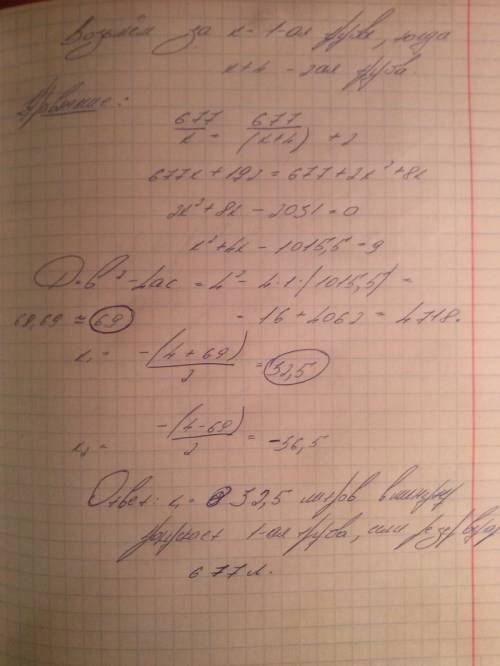 Возьмём за x - 1-ая труба, тогда
x+4 - 2ая труба.
Уравнение:
677/x = 677/(x+4) + 2
677x + 192 = 677 + 2x² + 8x
2x² + 8x - 2031 = 0
x² + 4x - 1015,5 = 9
D = b² - 4ac = 4² - 4·1·(1015,5) =
68,69 ≈ 69 = 16 + 4062 = 4718.
x₁ = -(4+69)/2 = 32,5
x₂ = -(4-69)/2 = -36,5
Ответ: x₁ = 32,5 литров в минуту
1-ая труба, если резервуар
677 л.